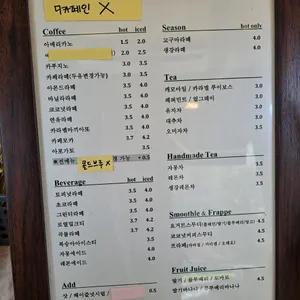 디카페인 X
Coffee hot iced
아메리카노 1.5 2.0
카푸치노 3.0 3.5
카페라떼(두유변경가능) 3.0 3.5
아몬드라떼 3.5 4.0
바닐라라떼 3.5 4.0
코코넛라떼 3.5 4.0
연유라떼 3.5 4.0
카라멜마끼아또 3.5 4.0
카페모카 3.7 4.2
아포가토 3.5
콜드브루 X 가능 + 0.5
Beverage hot iced
토피넛라떼 3.5 4.0
초코라떼 3.5 4.0
그린티라떼 3.5 4.0
로얄밀크티 3.7 4.2
곡물라떼 3.7 4.2
복숭아아이스티 3.5
자몽에이드 4.0
레몬에이드 4.0
Add
샷 / 헤이즐넛시럽 / 0.5
Season hot only
고구마라떼 4.0
생강라떼 4.0
Tea
캐모마일 / 카라멜 루이보스 3.0
페퍼민트 / 얼그레이 3.0
유자차 3.0
대추차 3.0
오미자차 3.5
Handmade Tea
자몽차 3.5
레몬차 3.5
생강레몬차 3.5
Smoothie & Frappe
요거트스무디(플레인/딸기/블루베리) 4.5
코코넛커피스무디 4.5
프라페(자바칩 / 커피칩 / 오레오) 4.5
Fruit Juice
딸기 / 블루베리 / 토마토 4.5
딸기바나나 / 블루베리바나나 4.5